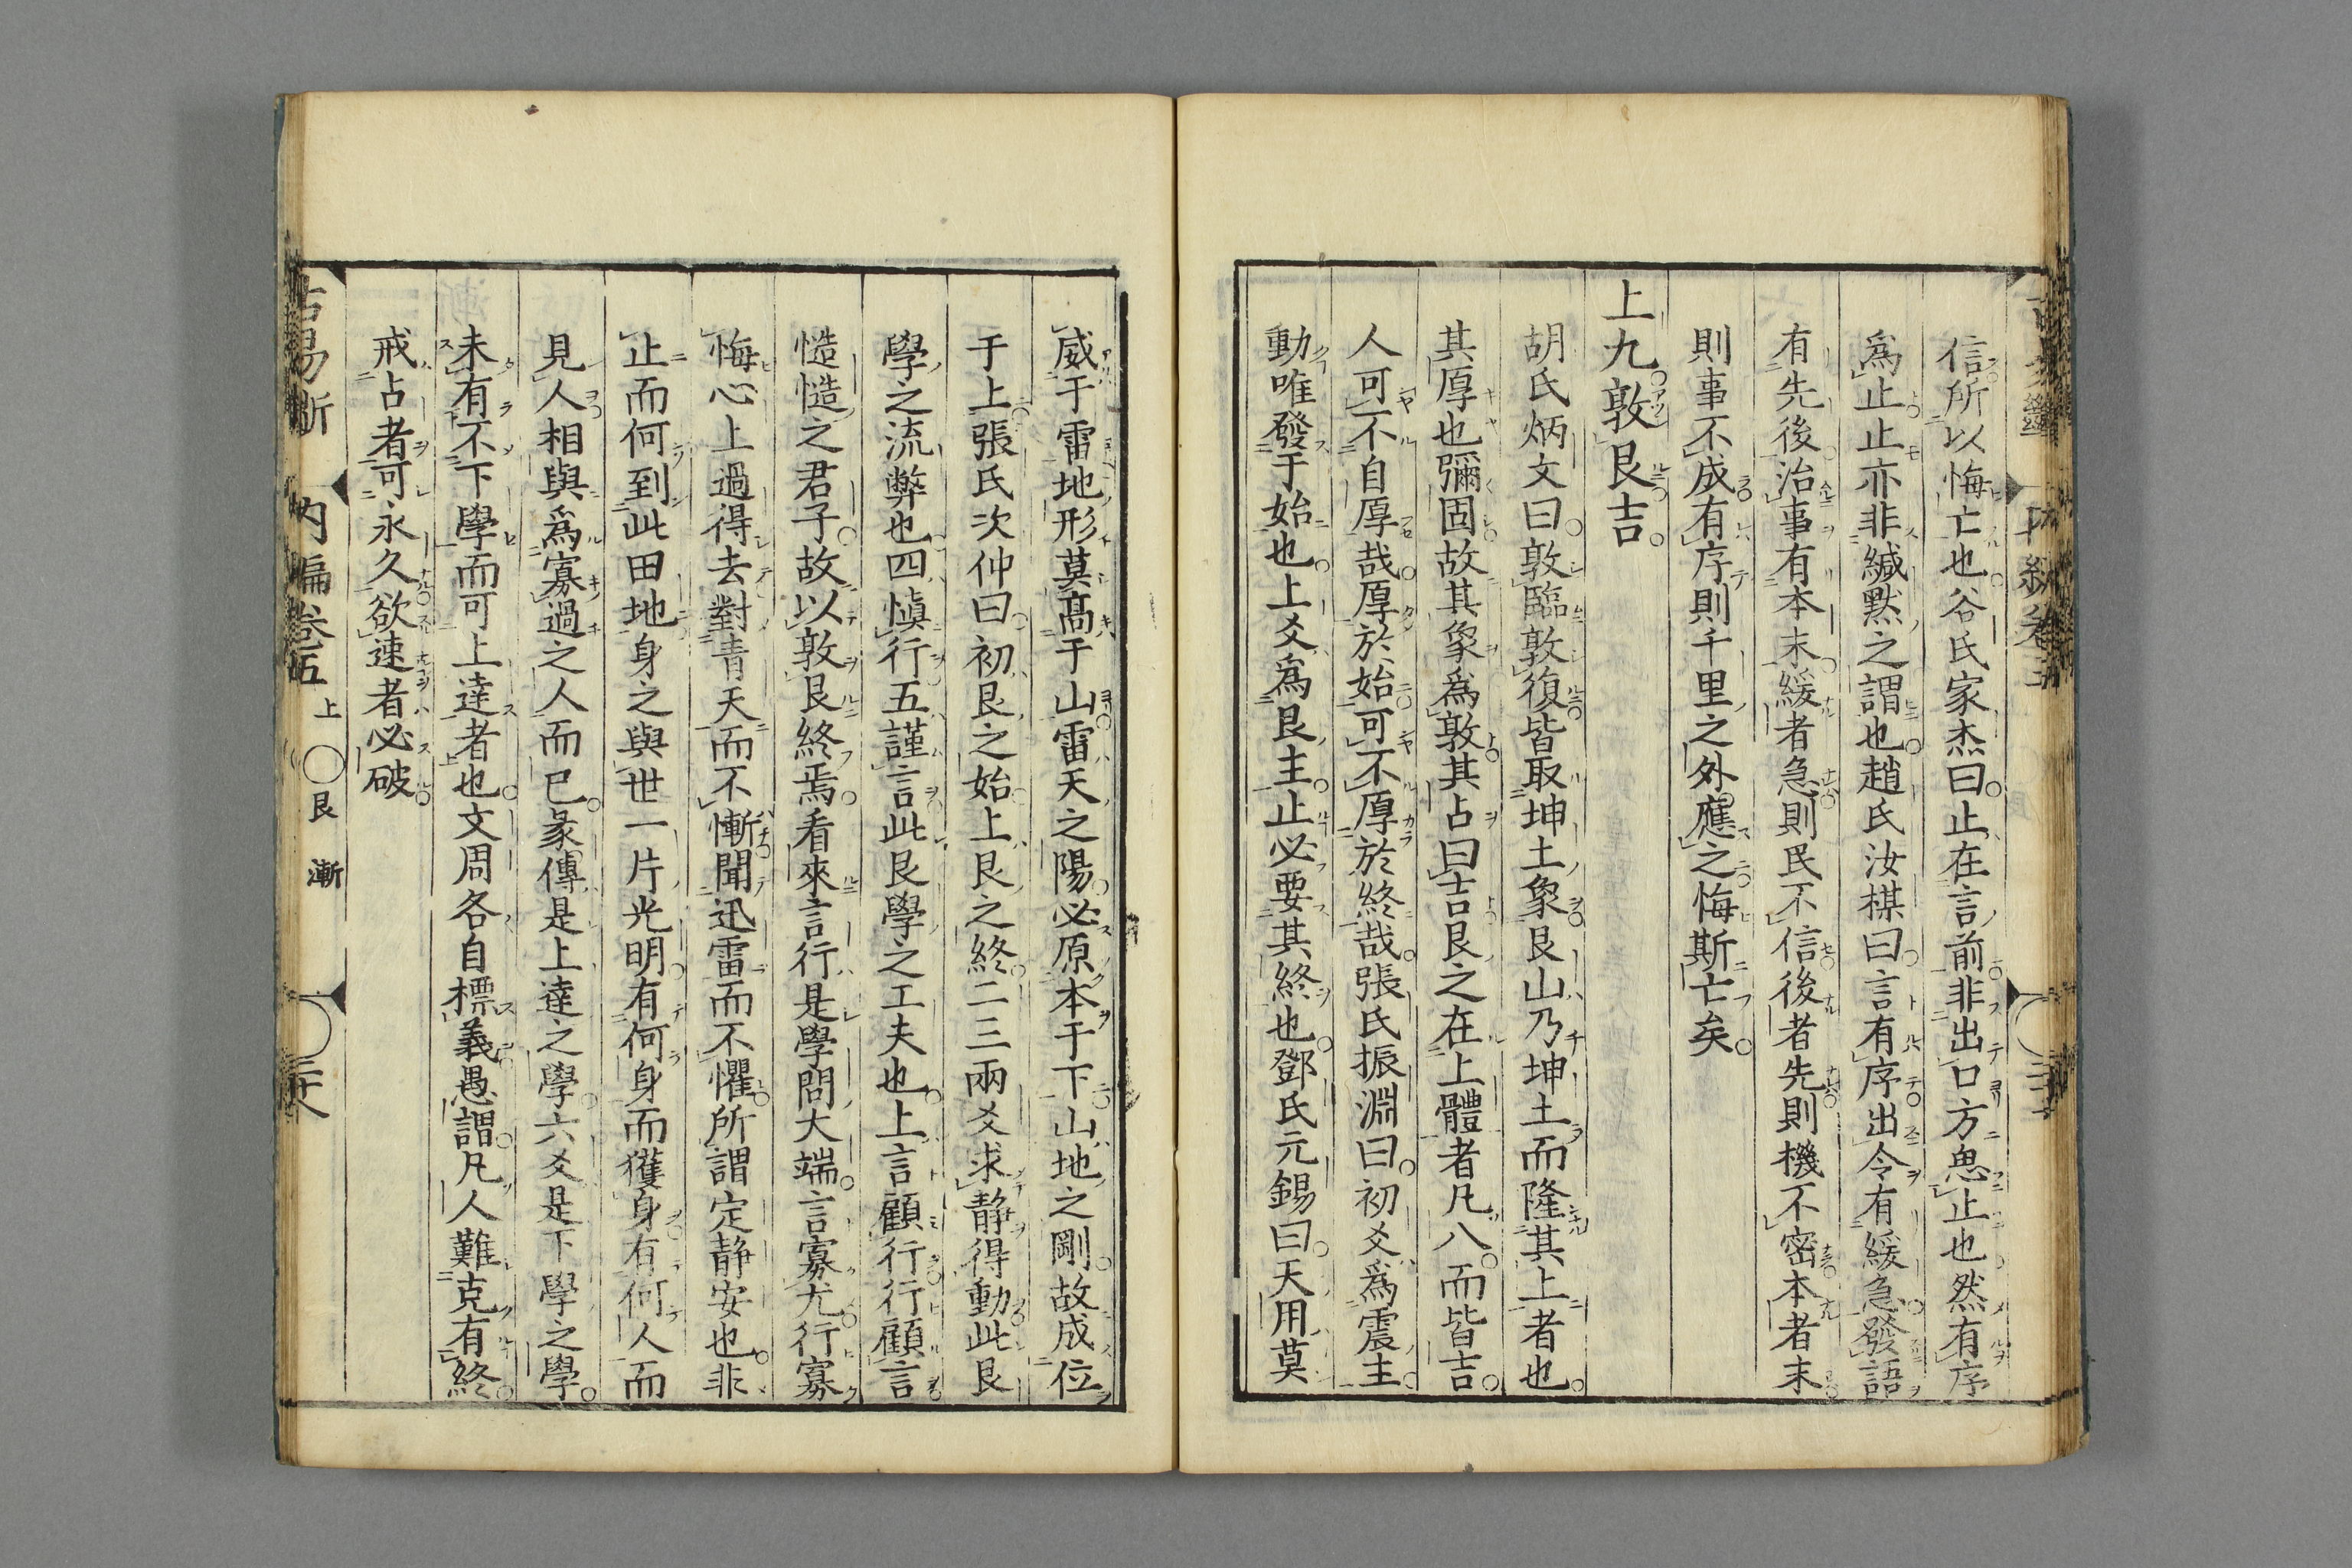 信所以悔亡也谷氏家杰曰止在言前非出口方思止也然有序
爲止止亦非緘默之謂也趙氏汝楳曰言有序出令有緩急發語
有先後治事有本末緩者急則民不信後者先則機不密本者末
則事不成有序則千里之外應之悔斯亡矣
上九敦艮吉
胡氏炳文曰敦臨敦復皆取坤土象艮山乃坤土而隆其上者也
其厚也彌固故其象爲敦其占曰吉艮之在上體者凡八而皆吉
人可不自厚哉厚於始可不厚於終哉張氏振淵曰初爻爲震主
動唯發于始也上爻爲艮主止必要其終也鄧氏元錫曰天用莫
威于雷地形莫髙于山雷天之陽必原本于下山地之剛故成位
于上張氏次仲曰初艮之始上艮之終二三兩爻求静得動此艮
學之流弊也四愼行五謹言此艮學之工夫也上言顧行行顧言
慥慥之君子故以敦艮終焉看來言行是學問大端言寡尤行寡
悔心上過得去對青天而不慚聞迅雷而不懼所謂定静安也非
止而何到此田地身之與世一片光明有何身而獲身有何人而
見人相與爲寡過之人而已彖傳是上達之學六爻是下學之學
未有不下學而可上達者也文周各自標義愚謂凡人難克有終
戒占者可永久欲速者必破
古易斷 内編卷五 上 ○艮 漸